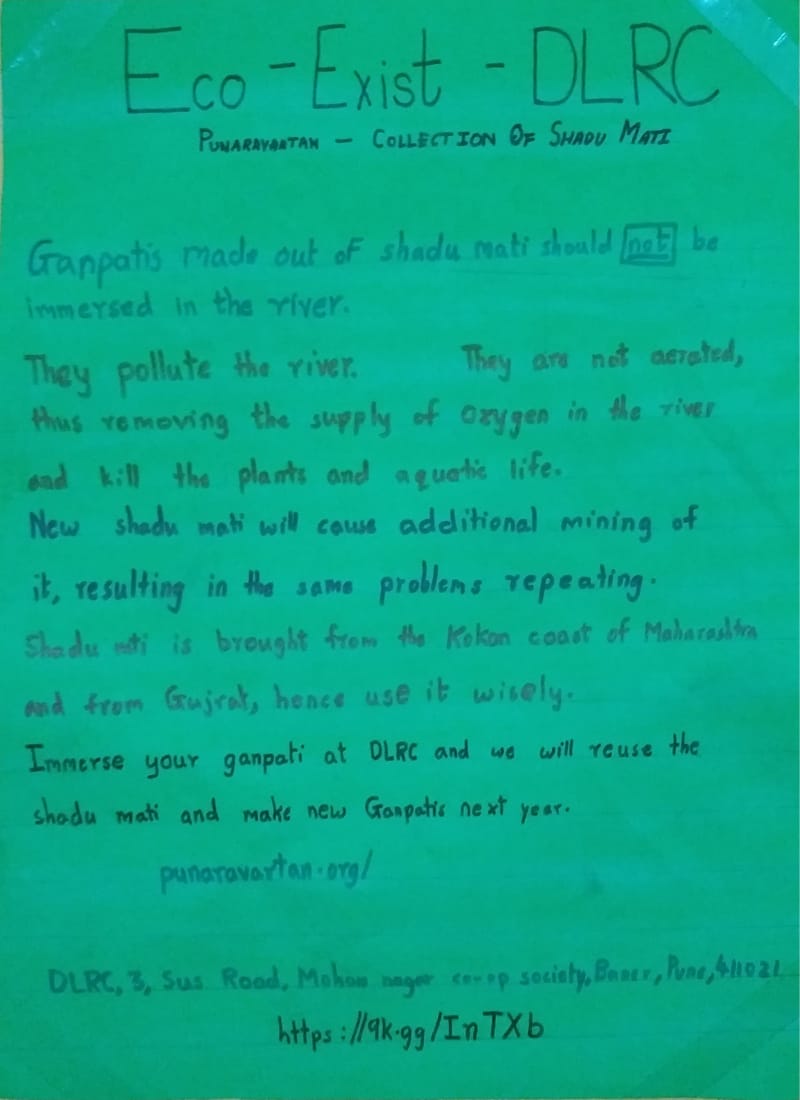 Eco-Exist-DLRC
PUNARAVARTAN - COLLECTION OF SHADU MATI
Ganpatis made out of shadu mati should not be
immersed in the river.
They pollute the river. They are not aerated,
thus removing the supply of oxygen in the river
and kill the plants and aquatic life.
New shadu mati will cause additional mining of
it, resulting in the same problems repeating.
Shadu mti is brought from the Kokan coast of Maharashtra
and from Gujrat, hence use it wisely.
Immerse your ganpati at DLRC and we will reuse the
shadu mati and make new Ganpatis next year.
punaravartan.org/
DLRC, 3, Sus Road, Mohan nagar co-op society, Baner, Pune, 411021
https://qk.gg/InTXb